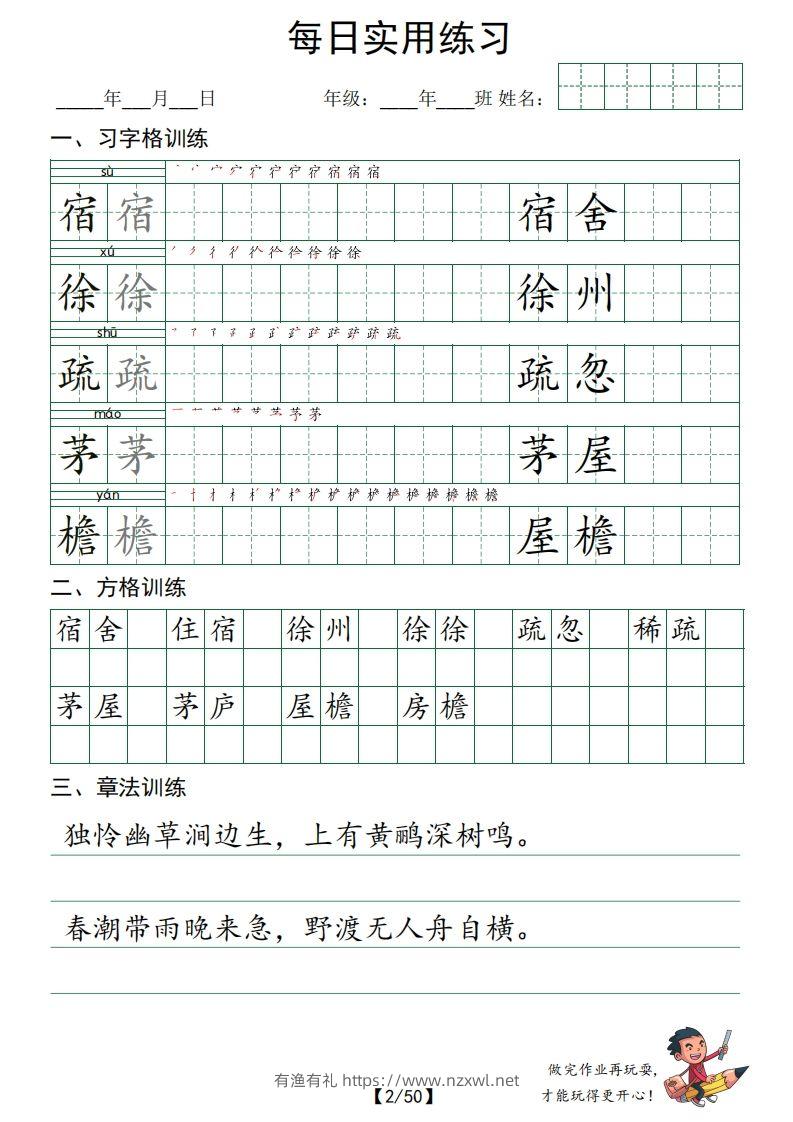 每日实用练习
_____年___月___日 年级：____年____班 姓名：
一、习字格训练
sù
宿 宿 宿 舍
xú
徐 徐 徐 州
shū
疏 疏 疏 忽
máo
茅 茅 茅 屋
yán
檐 檐 屋 檐
二、方格训练
宿 舍 住 宿 徐 州 徐 徐 疏 忽 稀 疏
茅 屋 茅 庐 屋 檐 房 檐
三、章法训练
独怜幽草涧边生，上有黄鹂深树鸣。
春潮带雨晚来急，野渡无人舟自横。
做完作业再玩耍，
才能玩得更开心！
有渔有礼 https://www.nzxwl.net
【2/50】